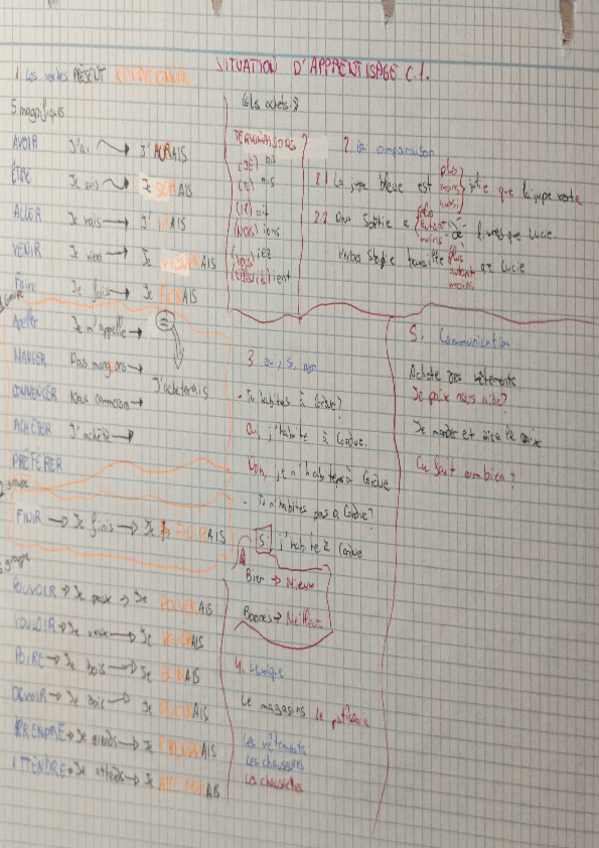 SITUATION D'APPRENTISAGE C.1.
1. Les verbes PRÉSENT CONDITIONNEL
5 magnifiques
AVOIR J'ai → J'AURAIS
ÊTRE Je suis → Je SERAIS
ALLER Je vais → J'IRAIS
VENIR Je viens → Je VIENDRAIS
Faire Je fais → Je FERAIS
groupe
Apeller Je m'appelle →
MANGER mangeons →
COMMENCER Nous →
ACHETER J'achète →
J'acheterais
PRÉFERER
groupe
FINIR → Je finis → Je FINIRAIS
groupe
POUVOIR → Je peux → Je POURRAIS
VOULOIR → Je veux → Je VOUDRAIS
BOIRE → Je bois → Je BOIRAIS
DEVOIR → Je dois → Je DEVRAIS
PRENDRE → Je prends → Je PRENDRAIS
ATTENDRE → Je attends → Je ATTENDRAIS
TERMINAISONS
(JE) ais
(TU) ais
(IL) ait
(NOUS) ions
(VOUS) iez
aient
2. La comparaison
2.1 La jupe bleue est plus moins aussi jolie que la jupe verte
2.2 Sophie a plus autant moins de livres que Lucie.
verbes Sophie travaille plus autant moins que Lucie
3. oui, si, non
- Tu habites à Cordue?
Oui, j'habite à Cordue.
Non, je n'habite pas à Cordue
- Tu n'habites pas a Cordue?
Si, j'habite à Cordue
Bien → Mieux
Bonnes → Meilleur
4.
Le magasins
Les vêtements
Les chaussures
Les chaussettes
5. Communication
Acheter des vêtements
Je peux vous aider?
Ça fait combien?